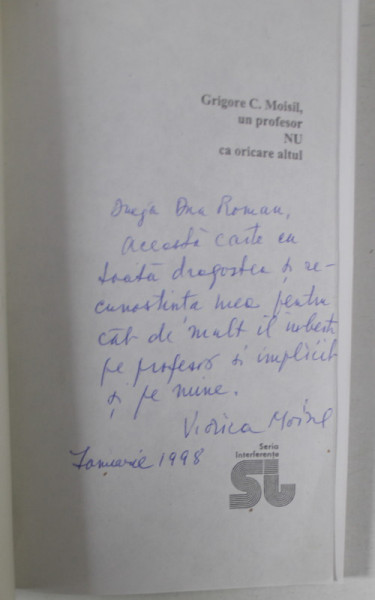 Grigore C. Moisil,
un profesor
NU
ca oricare altul
Dnei Roman,
această carte cu
toată dragostea și re-
cunoștința mea pentru
cât de mult îl iubești
pe profesor și implicit
și pe mine.
Viorica Moisil
Ianuarie 1998
Seria
Interferențe